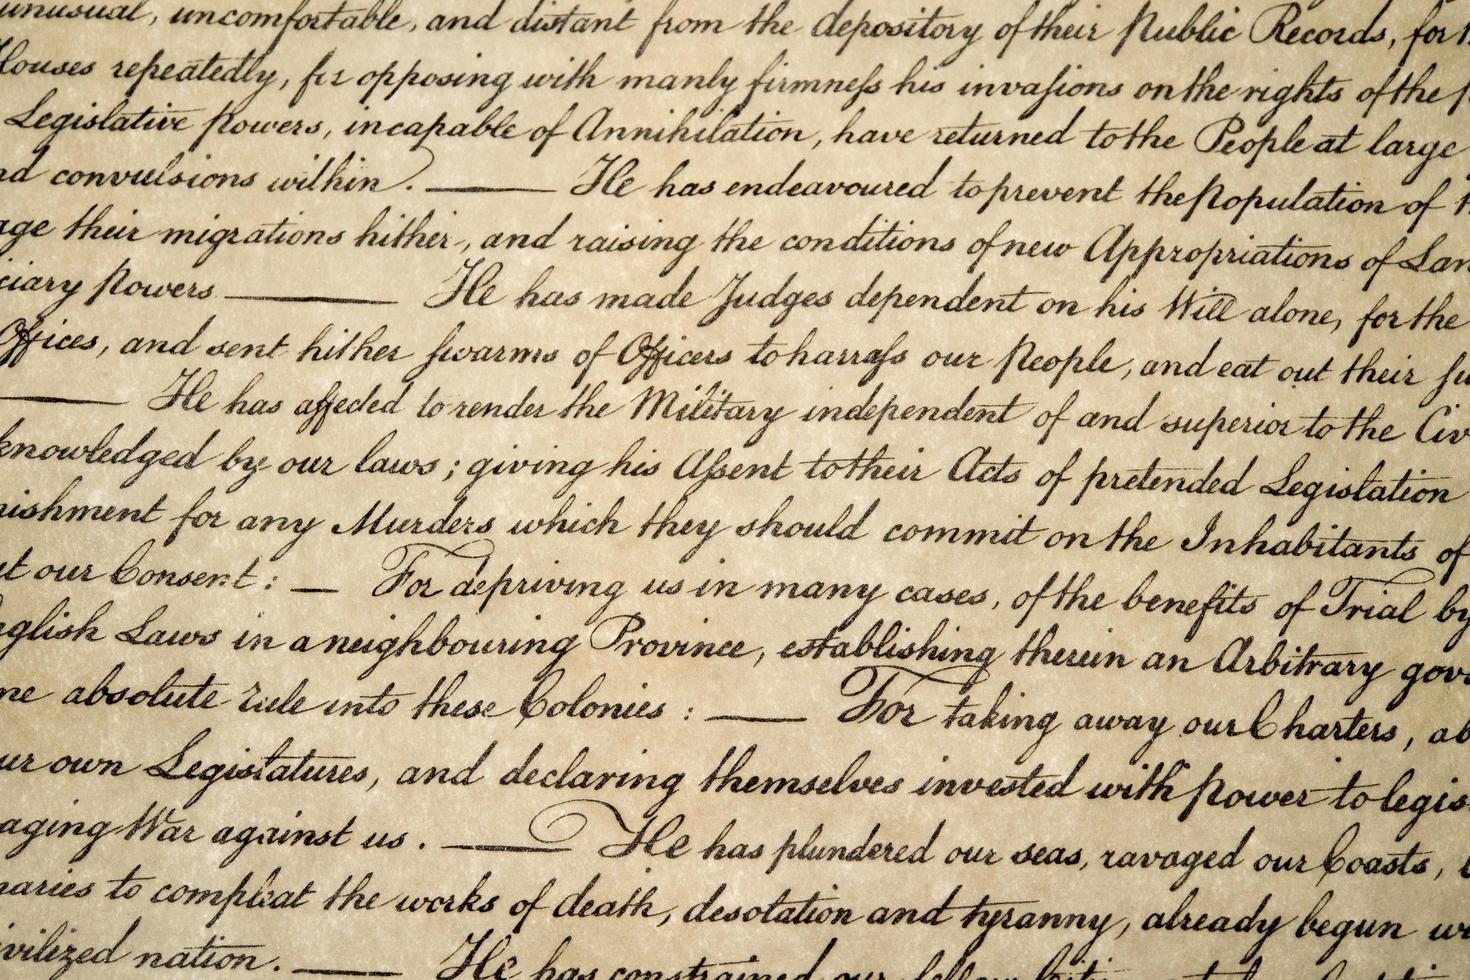 unusual, uncomfortable, and distant from the depository of their Public Records, for t
Houses repeatedly, for opposing with manly firmneſs his invaſions on the rights of the p
Legislative powers, incapable of Annihilation, have returned to the People at large
nd convulsions within. — He has endeavoured to prevent the population of t
age their migrations hither, and raising the conditions of new Appropriations of Lan
ciary powers — He has made Judges dependent on his Will alone, for the
Offices, and sent hither ſwarms of Officers to harraſs our people, and eat out their ſu
— He has affected to render the Military independent of and superior to the Civ
knowledged by our laws; giving his Aſsent to their Acts of pretended Legislation
nishment for any Murders which they should commit on the Inhabitants of
ut our Consent: — For depriving us in many cases, of the benefits of Trial by
nglish Laws in a neighbouring Province, establishing therein an Arbitrary gov
me absolute rule into these Colonies: — For taking away our Charters, ab
ur own Legislatures, and declaring themselves invested with power to legis
aging War against us. — He has plundered our seas, ravaged our Coasts,
naries to compleat the works of death, desolation and tyranny, already begun w
ivilized nation. — He has constrained our fellow